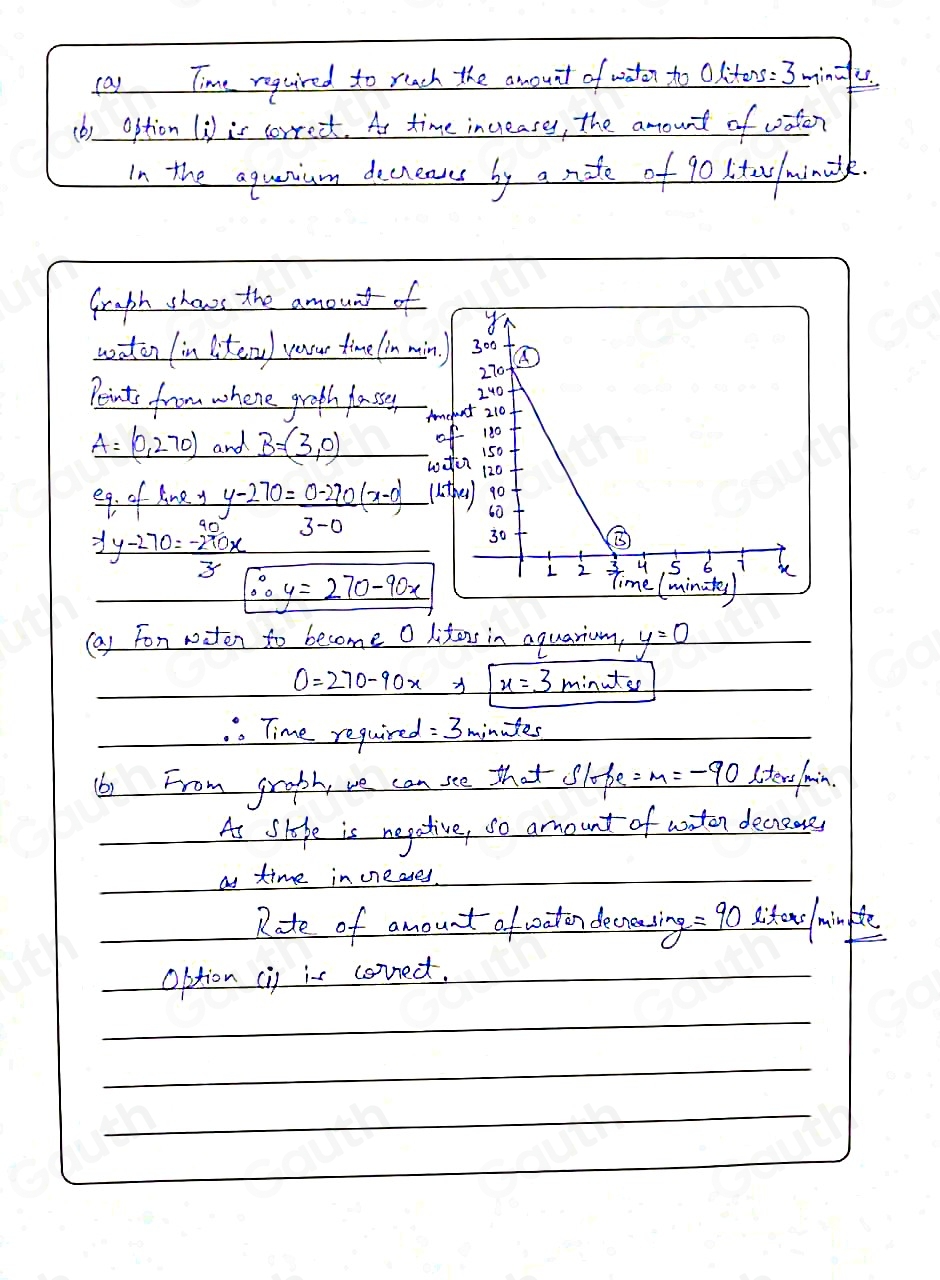 (a) Time required to reach the amount of water to 0 liters = 3 minutes.
(b) Option (i) is correct. As time increases, the amount of water
in the aquarium decreases by a rate of 90 liters/minute.
Graph shows the amount of
water (in liters) versus time (in min.)
Points from where graph passes,
A = (0,270) and B=(3,0)
eq. of line → y-270 = 0-270 (x-0)
3-0
⇒ y-270 = -270x
90
3
∴ y = 270-90x
y
300
A
270
240
Amount 210
of 180
150
water 120
(litres) 90
60
30
B
1 2 3 4 5 6 7 x
Time (minutes)
(a) For water to become 0 liters in aquarium, y = 0
0 = 270-90x → x = 3 minutes
∴ Time required = 3 minutes
(b) From graph, we can see that slope = m = -90 liters/min.
As slope is negative, so amount of water decreases
as time increases.
Rate of amount of water decreasing = 90 liters/minute
Option (i) is correct.
Gauth